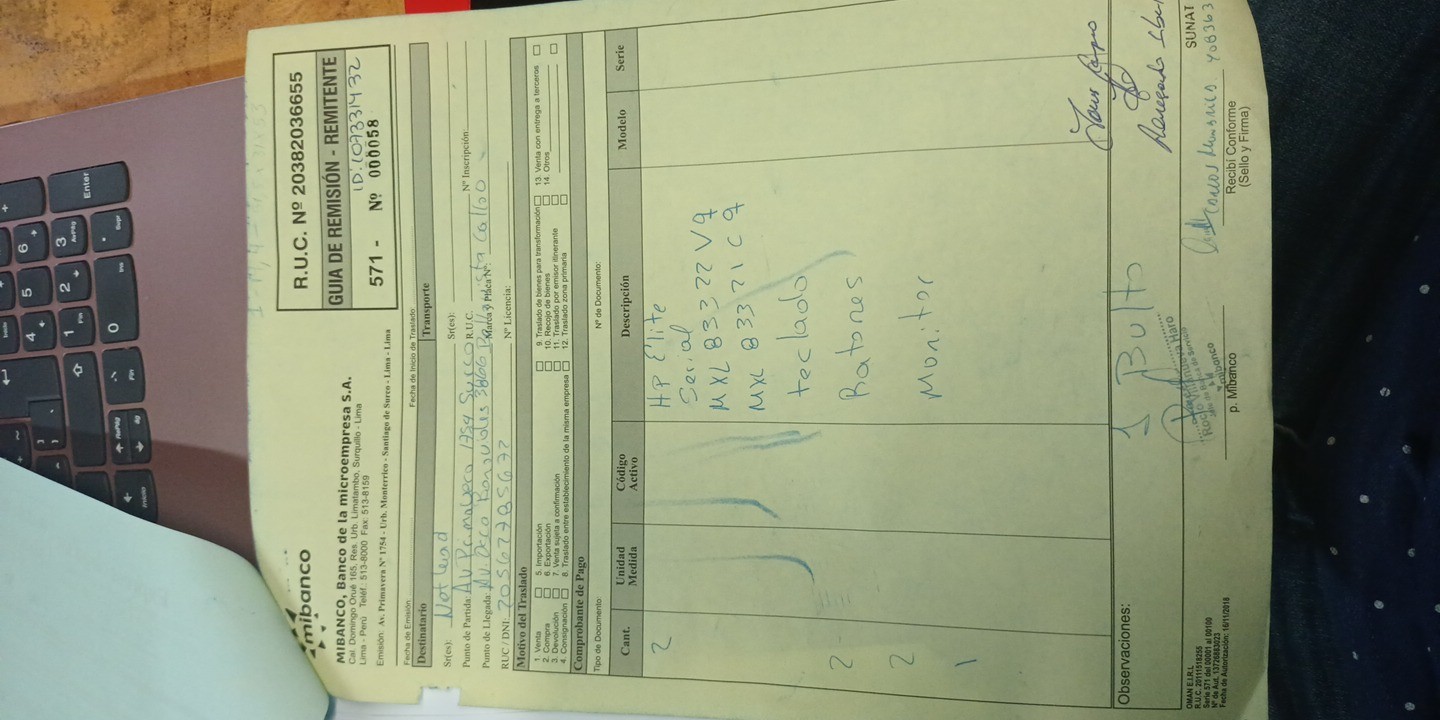 mibanco
MIBANCO, Banco de la microempresa S.A.
Cal. Domingo Orué 165, Res. Urb. Limatambo, Surquillo - Lima
Lima - Perú Teléf.: 513-8000 Fax: 513-8159
Emisión: Av. Primavera Nº 1754 - Urb. Monterrico - Santiago de Surco - Lima - Lima
R.U.C. Nº 20382036655
GUIA DE REMISIÓN - REMITENTE
ID:107331432
571 - Nº 000058
Fecha de Emisión: Fecha de Inicio de Traslado:
Destinatario Transporte
Sr(es): Netlead Sr(es):
Punto de Partida: Av Primavera 1754 Surco R.U.C. Nº Inscripción:
Punto de Llegada: Marca y Placa Nº: Callao
RUC / DNI: 20567785672 Nº Licencia:
Motivo del Traslado
1. Venta 5. Importación 9. Traslado de bienes para transformación 13. Venta con entrega a terceros
2. Compra 6. Exportación 10. Recojo de bienes 14. Otros
3. Devolución 7. Venta sujeta a confirmación 11. Traslado por emisor itinerante
4. Consignación 8. Traslado entre establecimiento de la misma empresa 12. Traslado zona primaria
Comprobante de Pago
Tipo de Documento: Nº de Documento:
Cant. Unidad Medida Código Activo Descripción Modelo Serie
2 HP Elite
Serial
MXL 83322V9
MXL 83321C9
2 teclado
2 Ratones
1 Monitor
Observaciones: 1 Bulto
OMAN E.I.R.L.
R.U.C. 20111518255
Serie 571 del 00001 al 00100
Nº de Aut. 13726883023
Fecha de Autorización: 16/11/2018
mibanco
p. Mibanco
Recibí Conforme
(Sello y Firma)
SUNAT
Enter
Inicio
Fin
Ins
Supr
AvPág
RePág
0
1
2
3
4
5
6